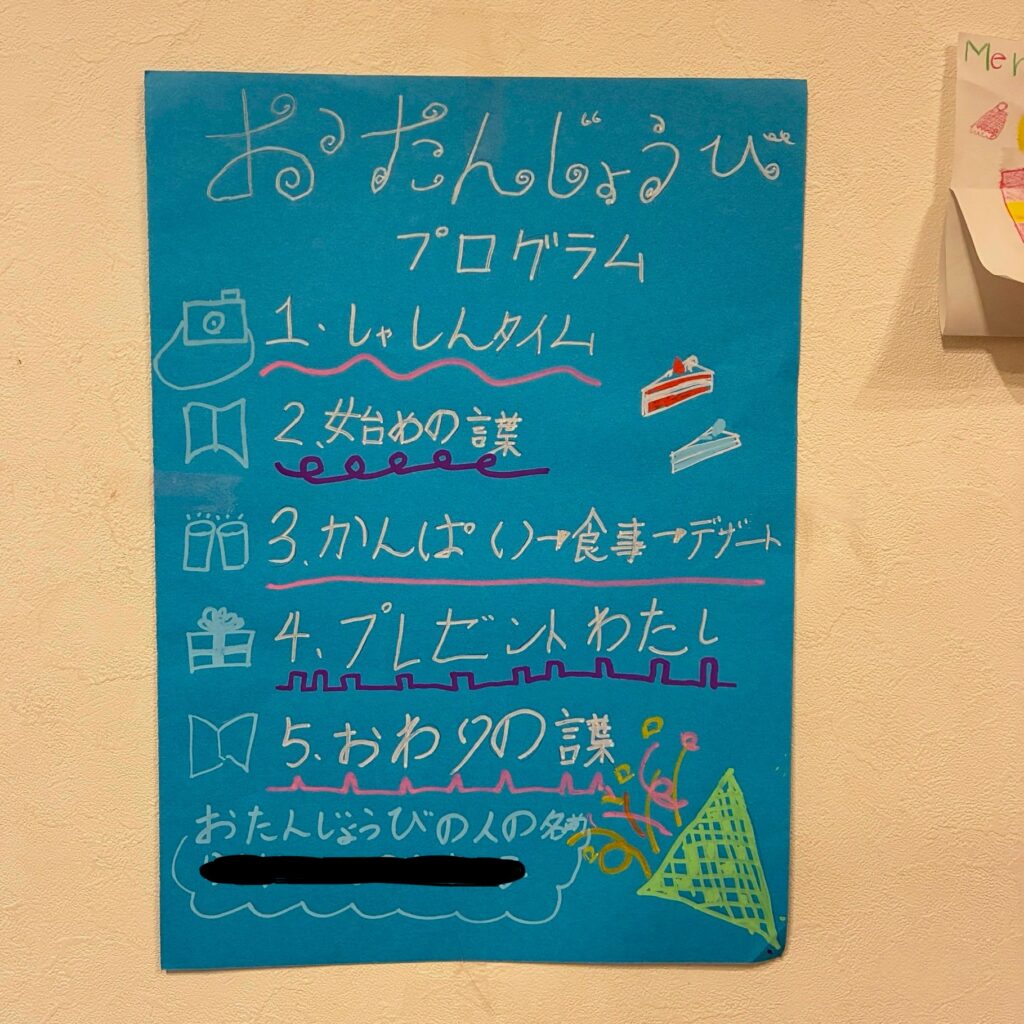 おたんじょうび
プログラム
1.しゃしんタイム
2.始めの言葉
3.かんぱい→食事→デザート
4.プレゼントわたし
5.おわりの言葉
おたんじょうびの人の名前
Mer